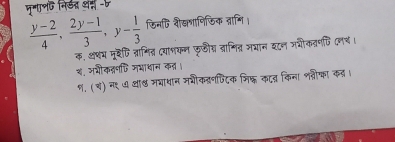 সৃজনশীল নির্ভর প্রশ্ন -৮
$\frac{y-2}{4}$, $\frac{2y-1}{3}$, $y-\frac{1}{3}$ তিনটি বীজগাণিতিক রাশি।
ক. প্রথম দুইটি রাশির যোগফল তৃতীয় রাশির সমান হলে সমীকরণটি লেখ।
খ. সমীকরণটি সমাধান কর।
গ. (খ) নং এ প্রাপ্ত সমাধান সমীকরণটিকে সিদ্ধ করে কিনা পরীক্ষা কর।